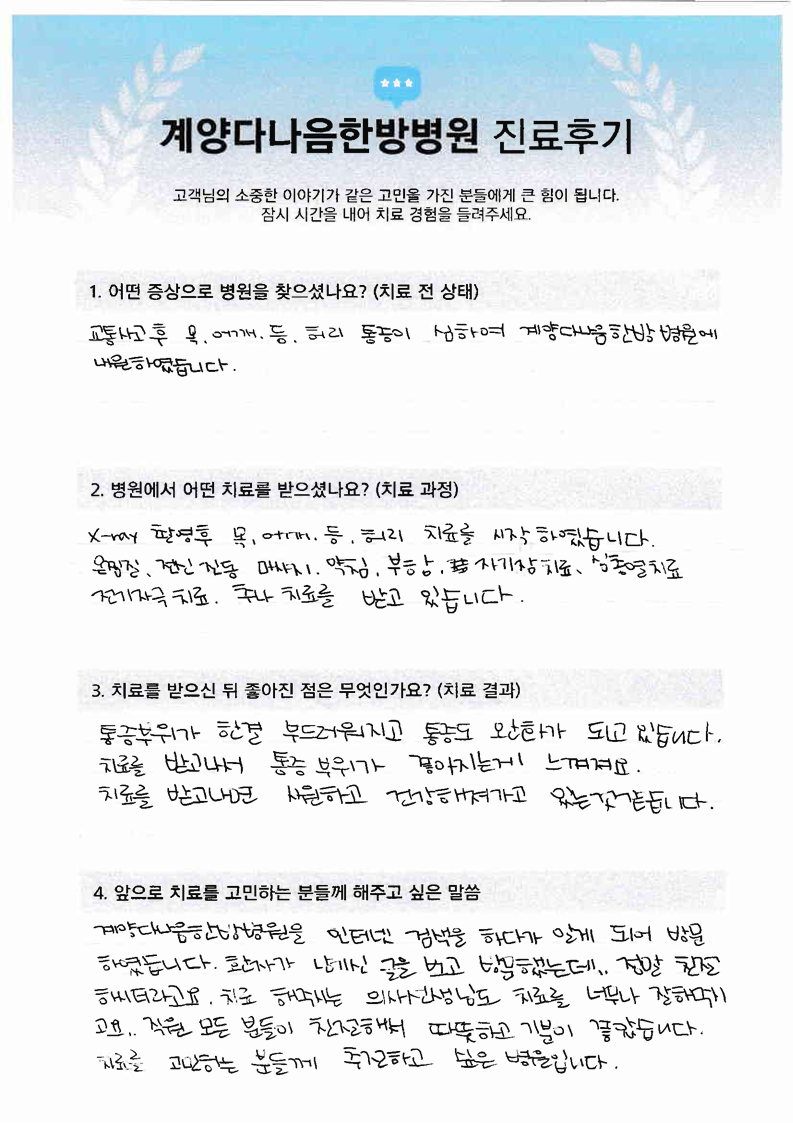 계양다나음한방병원 진료후기
고객님의 소중한 이야기가 같은 고민을 가진 분들에게 큰 힘이 됩니다.
잠시 시간을 내어 치료 경험을 들려주세요.
1. 어떤 증상으로 병원을 찾으셨나요? (치료 전 상태)
교통사고 후 목, 어깨, 등, 허리 통증이 심하여 계양다나음한방병원에
내원하였습니다.
2. 병원에서 어떤 치료를 받으셨나요? (치료 과정)
X-ray 촬영후 목, 어깨, 등, 허리 치료를 시작하였습니다.
온찜질, 전신 진동 마사지, 약침, 부항, 자기장치료, 심층열치료
전기자극치료, 추나 치료를 받고 있습니다.
3. 치료를 받으신 뒤 좋아진 점은 무엇인가요? (치료 결과)
통증부위가 한결 부드러워지고 통증도 완화가 되고 있습니다.
치료를 받고나서 통증 부위가 좋아지는게 느껴져요.
치료를 받고나면 시원하고 건강해져가고 있는것같습니다.
4. 앞으로 치료를 고민하는 분들께 해주고 싶은 말씀
계양다나음한방병원을 인터넷 검색을 하다가 알게 되어 방문
하였습니다. 환자가 남기신 글을 보고 방문했는데.. 정말 친절
하시더라고요. 치료 해주시는 의사선생님도 치료를 너무나 잘해주시
고요.. 직원 모든 분들이 친절해서 따뜻하고 기분이 좋았습니다.
치료를 고민하는 분들께 추천하고 싶은 병원입니다.